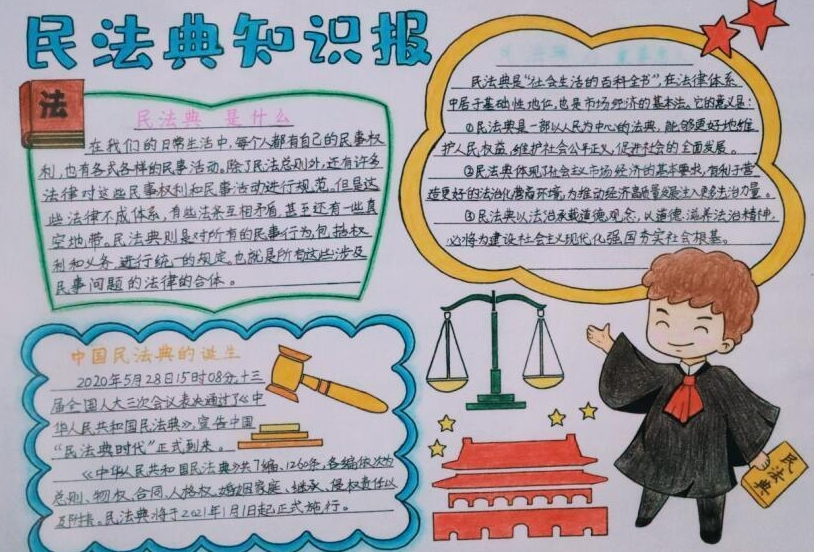 民法典知识报
法
民法典 是什么
在我们的日常生活中,每个人都有自己的民事权
利,也有各式各样的民事活动。除了民法总则外,还有许多
法律对这些民事权利和民事活动进行规范,但是这
些法律不成体系,有些法条互相矛盾,甚至还有一些真
空地带。民法典则是对所有的民事行为包括权
利和义务,进行统一的规定,也就是所有这些涉及
民事问题的法律的合体。
民法典是“社会生活的百科全书”,在法律体系
中居于基础性地位,也是市场经济的基本法。它的意义是:
①民法典是一部以人民为中心的法典,能够更好地维
护人民权益,维护社会公平正义,促进社会的全面发展。
②民法典体现了社会主义市场经济的基本要求,有利于营
造更好的法治化营商环境,为推动经济高质量发展注入更多法治力量。
③民法典以法治承载道德观念,以道德滋养法治精神,
必将为建设社会主义现代化强国夯实社会根基。
中国民法典的诞生
2020年5月28日15时08分,十三
届全国人大三次会议表决通过了《中
华人民共和国民法典》,宣告中国
“民法典时代”正式到来。
《中华人民共和国民法典》共7编、1260条,各编依次为
总则、物权、合同、人格权、婚姻家庭、继承、侵权责任以
及附则。民法典将于2021年1月1日起正式施行。
民法典